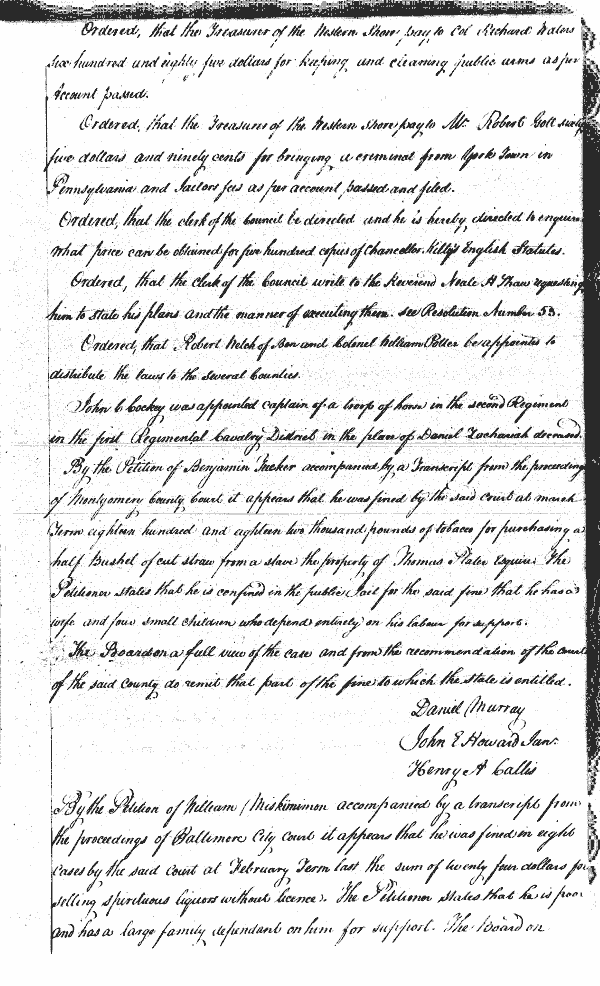 Ordered, that the Treasurer of the Western Shore pay to Col Richard Waters
six hundred and eighty five dollars for keeping and cleaning public arms as per
account passed.
Ordered, that the Treasurer of the Western Shore pay to Mr. Robert Gott sixty
five dollars and ninety cents for bringing a criminal from York Town in
Pennsylvania and Jailors fees as per account, passed and filed.
Ordered, that the clerk of the Council be directed and he is hereby, directed to enquire
what price can be obtained for five hundred copies of Chancellor Kilty's English Statutes.
Ordered, that the clerk of the Council write to the Reverend Neale H Shaw requesting
him to state his plans and the manner of executing them. see Resolution Number 53.
Ordered, that Robert Welch of Ben and Colonel William Potter be appointed to
distribute the laws to the several Counties.
John C Cockey was appointed captain of a troop of horse in the second Regiment
in the first Regimental Cavalry District in the place of Daniel Zachariah deceased.
By the Petition of Benjamin Tucker accompanied by a Transcript from the proceedings
of Montgomery County Court it appears that he was fined by the said court at march
Term eighteen hundred and eighteen two thousand pounds of tobacco for purchasing a
half Bushel of cut straw from a slave the property of Thomas Plater Esquire. The
Petitioner states that he is confined in the public Jail for the said fine that he has a
wife and four small children who depend entirely on his labour for support.
The Board on a full view of the case and from the recommendation of the court
of the said county do remit that part of the fine to which the state is entitled.
Daniel Murray
John E Howard Junr.
Henry A Callis
By the Petition of William Miskimimon accompanied by a transcript from
the proceedings of Baltimore City court it appears that he was fined in eight
cases by the said court at February Term last the sum of twenty four dollars for
selling spirituous liquors without licence. The Petitioner states that he is poor
and has a large family dependant on him for support. The Board on